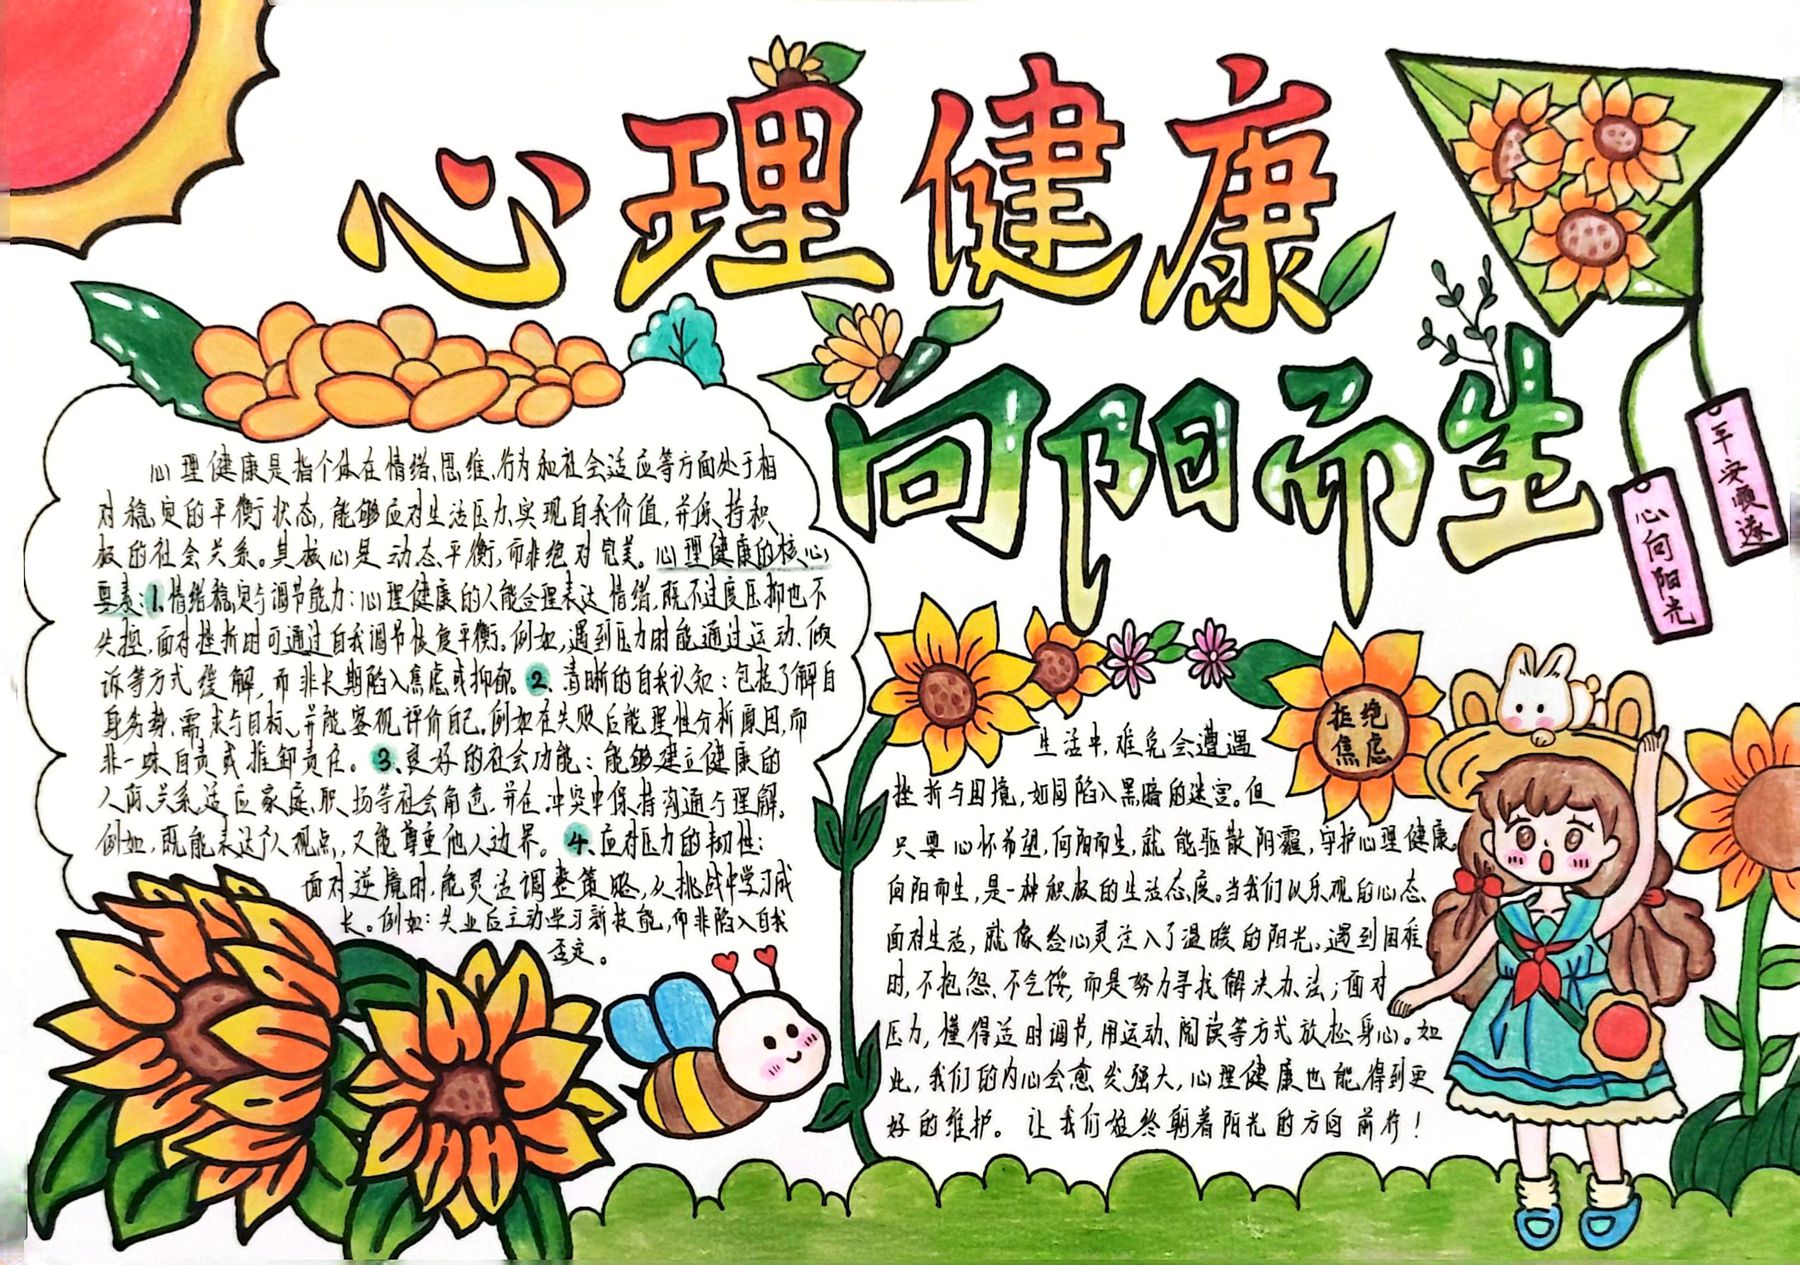 心理健康
向阳而生
平安顺遂
心向阳光
心理健康是指个体在情绪、思维、行为和社会适应等方面处于相
对稳定的平衡状态,能够应对生活压力、实现自我价值,并保持积
极的社会关系。其核心是动态平衡,而非绝对完美。心理健康的核心
要素:1.情绪稳定与调节能力:心理健康的人能合理表达情绪,既不过度压抑也不
失控,面对挫折时可通过自我调节恢复平衡。例如,遇到压力时能通过运动、倾
诉等方式缓解,而非长期陷入焦虑或抑郁。2、清晰的自我认知:包括了解自
身劣势、需求与目标、并能客观评价自己。例如在失败后能理性分析原因,而
非一味自责或推卸责任。3、良好的社会功能:能够建立健康的
人际关系适应家庭、职场等社会角色,并在冲突中保持沟通与理解。
例如,既能表达个人观点,又能尊重他人边界。4、应对压力的韧性:
面对逆境时,能灵活调整策略,从挑战中学习成
长。例如:失业后主动学习新技能,而非陷入自我
否定。
拒绝
焦虑
生活中,难免会遭遇
挫折与困境,如同陷入黑暗的迷宫。但
只要心怀希望,向阳而生,就能驱散阴霾,守护心理健康。
向阳而生,是一种积极的生活态度。当我们以乐观的心态
面对生活,就像给心灵注入了温暖的阳光。遇到困难
时,不抱怨、不气馁,而是努力寻找解决办法;面对
压力,懂得适时调节,用运动、阅读等方式放松身心。如
此,我们的内心会愈发强大,心理健康也能得到更
好的维护。让我们始终朝着阳光的方向前行!